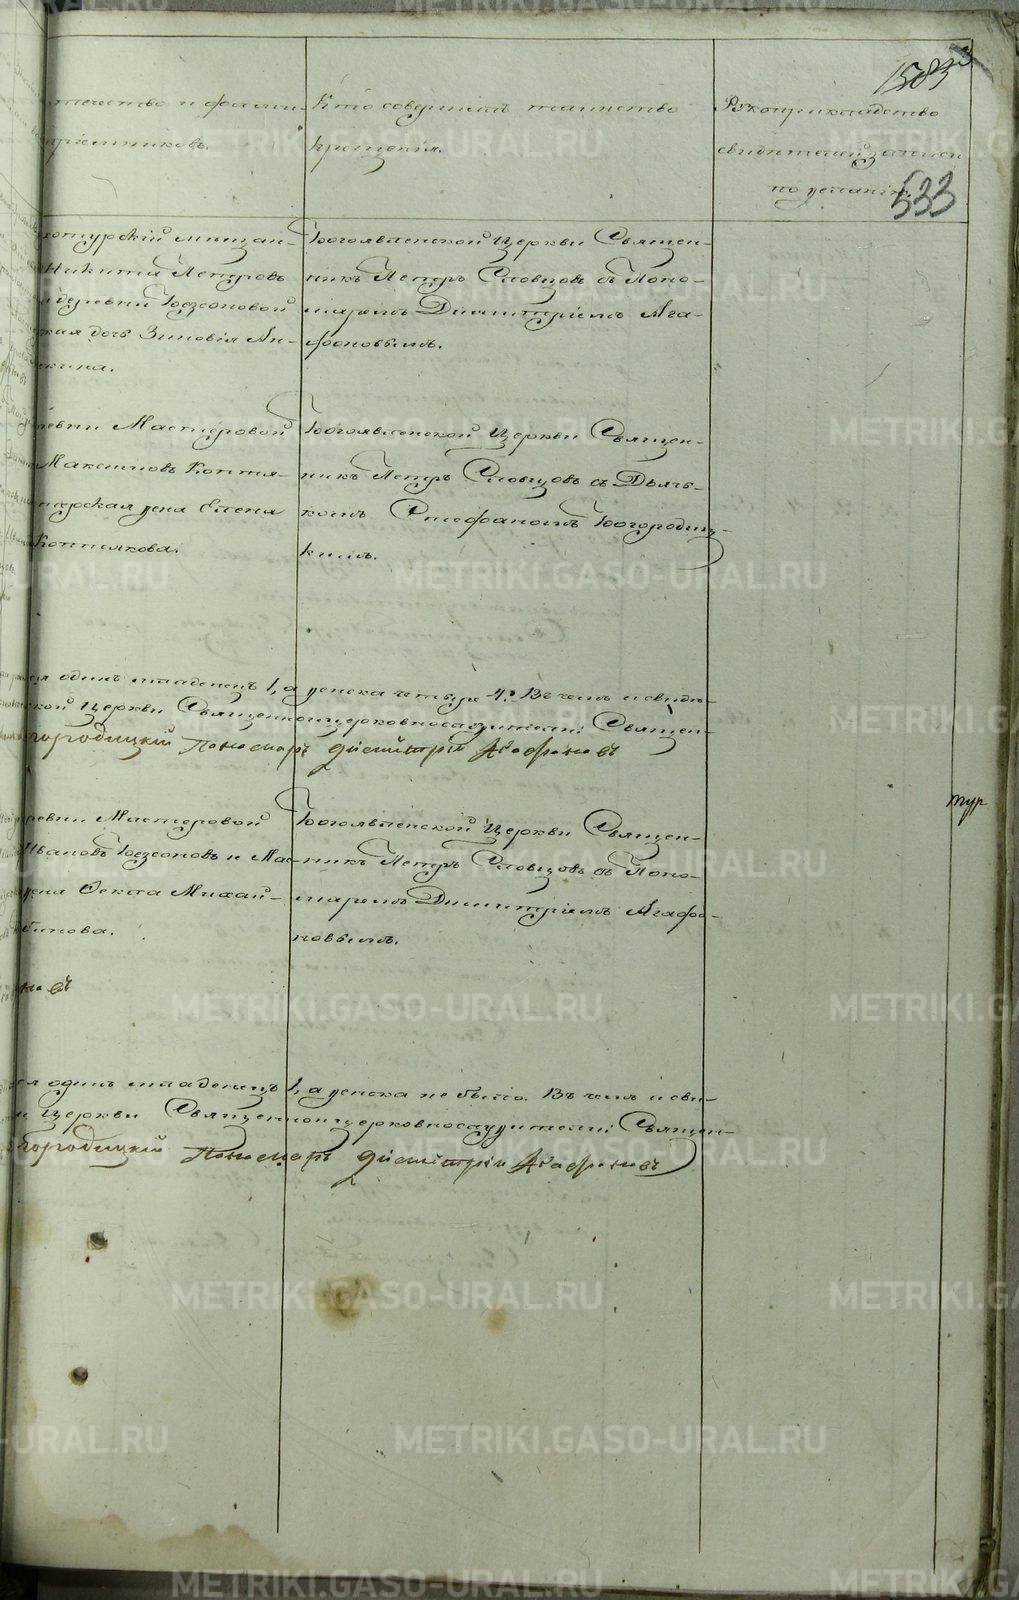 течество и фами-
Кто совершалъ таинство
Рукоприкладство
пріемниковъ.
Крещенія.
свидѣтелей записи
по желанію.
533
хотурскій мѣщан-
Никита Петровъ
деревни Безсоновой
кая дочь Зиновія Ан-
кина.
Богоявленской Церкви Священ-
никъ Петръ Словцовъ съ Поно-
маремъ Димитріемъ Ага-
фоновымъ.
ревни Мастеровой
Максимовъ Коптя-
терская жена Елена
Коптякова.
Богоявленской Церкви Священ-
никъ Петръ Словцовъ съ Дьяч-
комъ Стефаномъ Богородиц-
кимъ.
ся одинъ младенецъ 1, а женска четыре 4. Въ чемъ и свидѣ-
ской Церкви Священноицерковнослужители: Священ-
городицкій Пономарь Димитрій Агафоновъ
ревни Мастеровой
Ивановъ Безсоновъ и Мас-
жена Фекла Михай-
бинова.
Богоявленской Церкви Священ-
никъ Петръ Словцовъ съ Поно-
маремъ Димитріемъ Агафо-
новымъ.
тур
новъ
ся одинъ младенецъ 1, а женска не было. Въ чемъ и сви-
Церкви Священноицерковнослужители: Священ-
Богородицкій Пономарь Димитрій Агафоновъ
METRIKI.GASO-URAL.RU